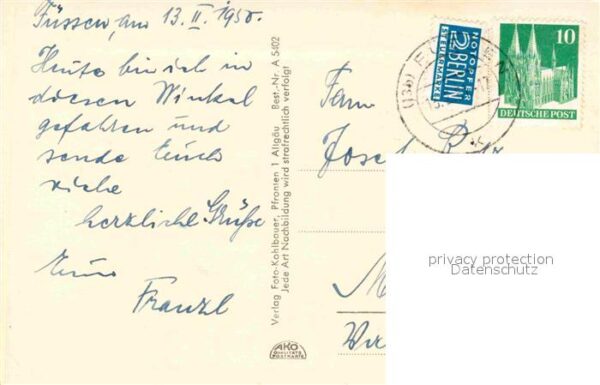 Füssen, am 13.II.1950.
Heute bin ich in
diesen Winkel
gefahren und
sende Euch
viele
herzliche Grüße
Euer
Franzl
Verlag Foto-Kohlbauer, Pfronten 1 Allgäu Best.-Nr. A 5402
Jede Art Nachbildung wird strafrechtlich verfolgt
AKO
QUALITÄTS
POSTKARTE
NOTOPFER
2 BERLIN
STEUERMARKE
10
DEUTSCHE POST
(13b)
Fam
Josef
privacy protection
Datenschutz